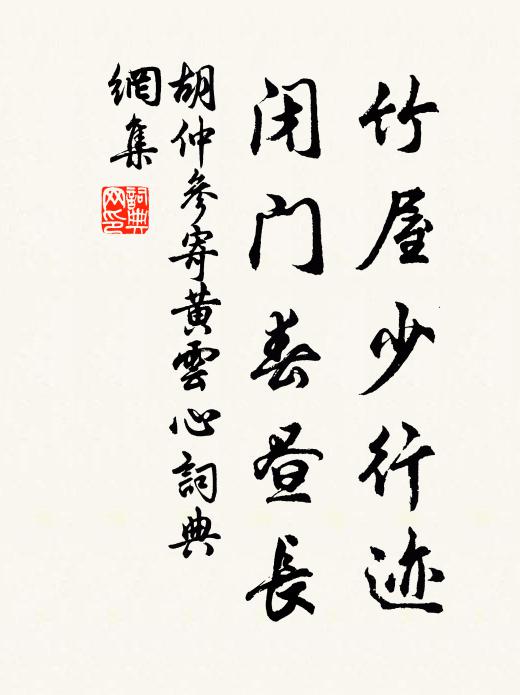 竹屋少行迹
闭门春昼長
胡仲参寄黄雲心詞典
網集
詞典网印